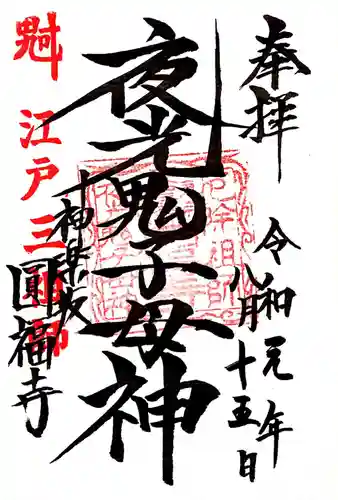 奉拝
令和元年
八月十五日
夜光鬼子母神
江戸三
神楽坂
圓福寺